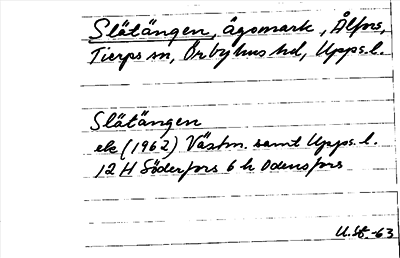 Slätängen, ägomark, Ålfors,
Tierps sn, Örbyhus hd, Upps.l.
Slätängen
ek (1962) Västm. samt Upps. l.
12 H Söderfors 6 h Odensfors
U.St.-63